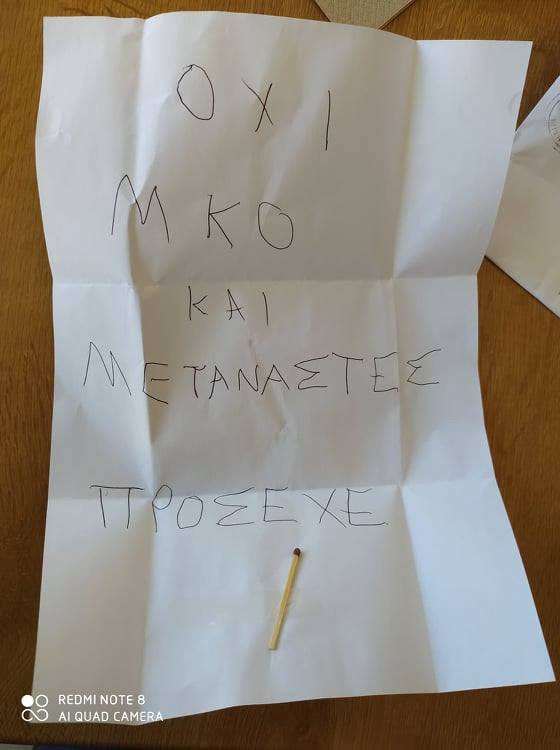 ΟΧΙ
ΜΚΟ
ΚΑΙ
ΜΕΤΑΝΑΣΤΕΣ
ΠΡΟΣΕΧΕ
REDMI NOTE 8
AI QUAD CAMERA